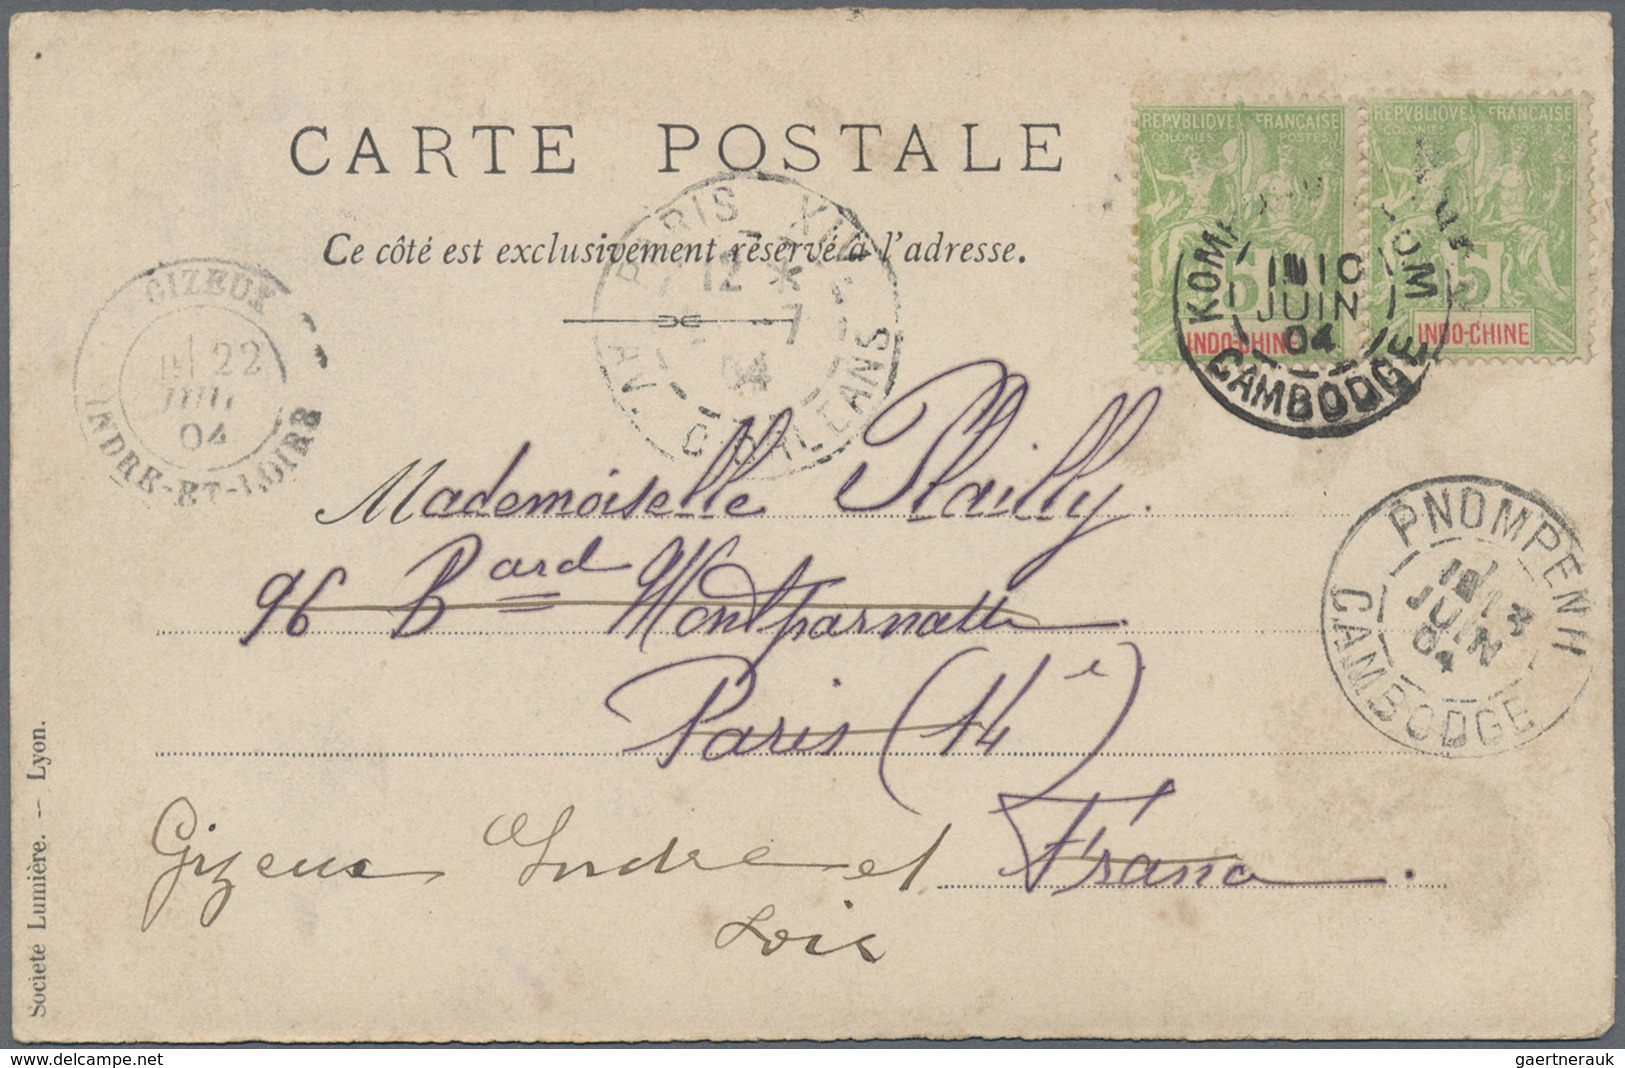 CARTE POSTALE
Ce côté est exclusivement réservé à l'adresse.
REPVBLIQVE FRANÇAISE
COLONIES POSTES
5
INDO-CHINE
REPVBLIQVE FRANÇAISE
COLONIES POSTES
5
INDO-CHINE
10
JUIN
04
CAMBODGE
PARIS
12 *
7
04
AV. D'ORLEANS
GIZEUX
22
04
INDRE-ET-LOIRE
Mademoiselle Plailly.
96 Bard Montparnasse
Paris (14e)
France.
Gizeux Indre et
Loir
PNOMPENH
JUIN
04
CAMBODGE
Societe Lumière. — Lyon.
gaertnerauk